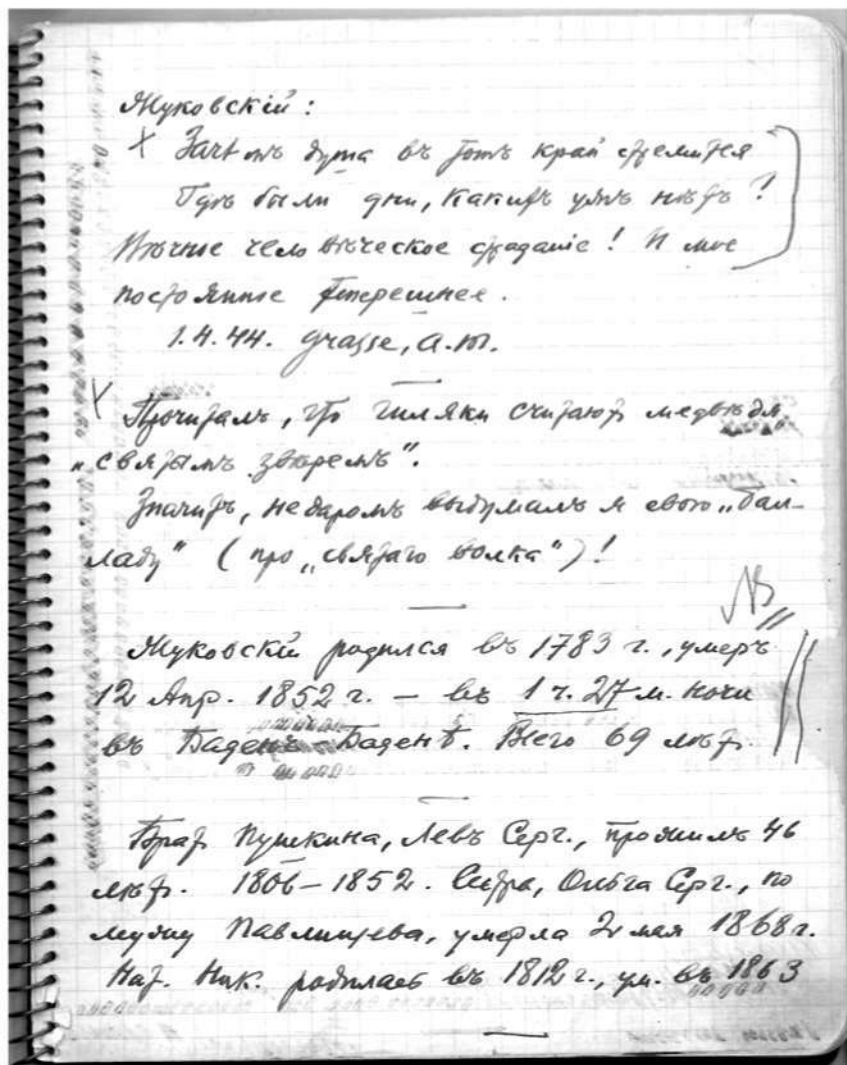 Жуковскій:
X Зачѣмъ душа въ тотъ край стремится
Гдѣ были дни, какихъ ужъ нѣтъ?
Вѣчное человѣческое страданіе! И мое
постоянное теперешнее.
1.4.44. Grasse, A.M.
X Прочиталъ, что гиляки считаютъ медвѣдя
„святымъ звѣремъ“.
Значитъ, недаромъ выдумалъ я свою „бал-
ладу“ (про „святаго волка“)!
NB
Жуковскій родился въ 1783 г., умеръ
12 Апр. 1852 г. – въ 1 ч. 27 м. ночи
въ Баденъ-Баденѣ. Всего 69 лѣтъ.
Братъ Пушкина, Левъ Серг., прожилъ 46
лѣтъ. 1806–1852. Сестра, Ольга Серг., по
мужу Павлищева, умерла 2 мая 1868 г.
Нат. Ник. родилась въ 1812 г., ум. въ 1863